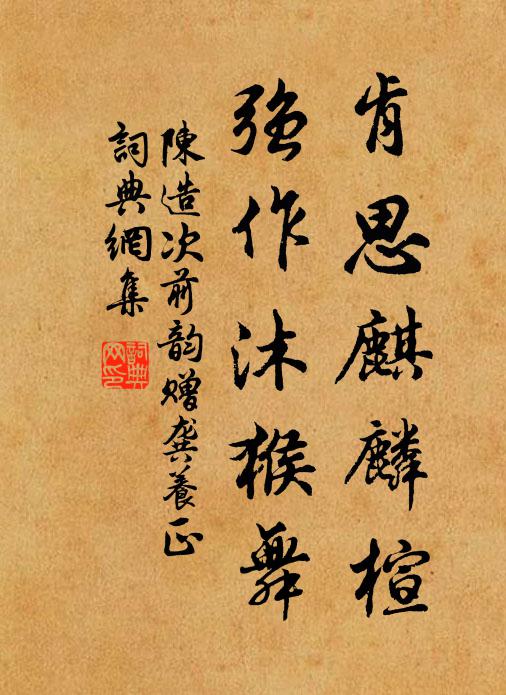 肯思麒麟楦
强作沐猴舞
陳造次前韵赠龚養正
詞典網集
詞典網印